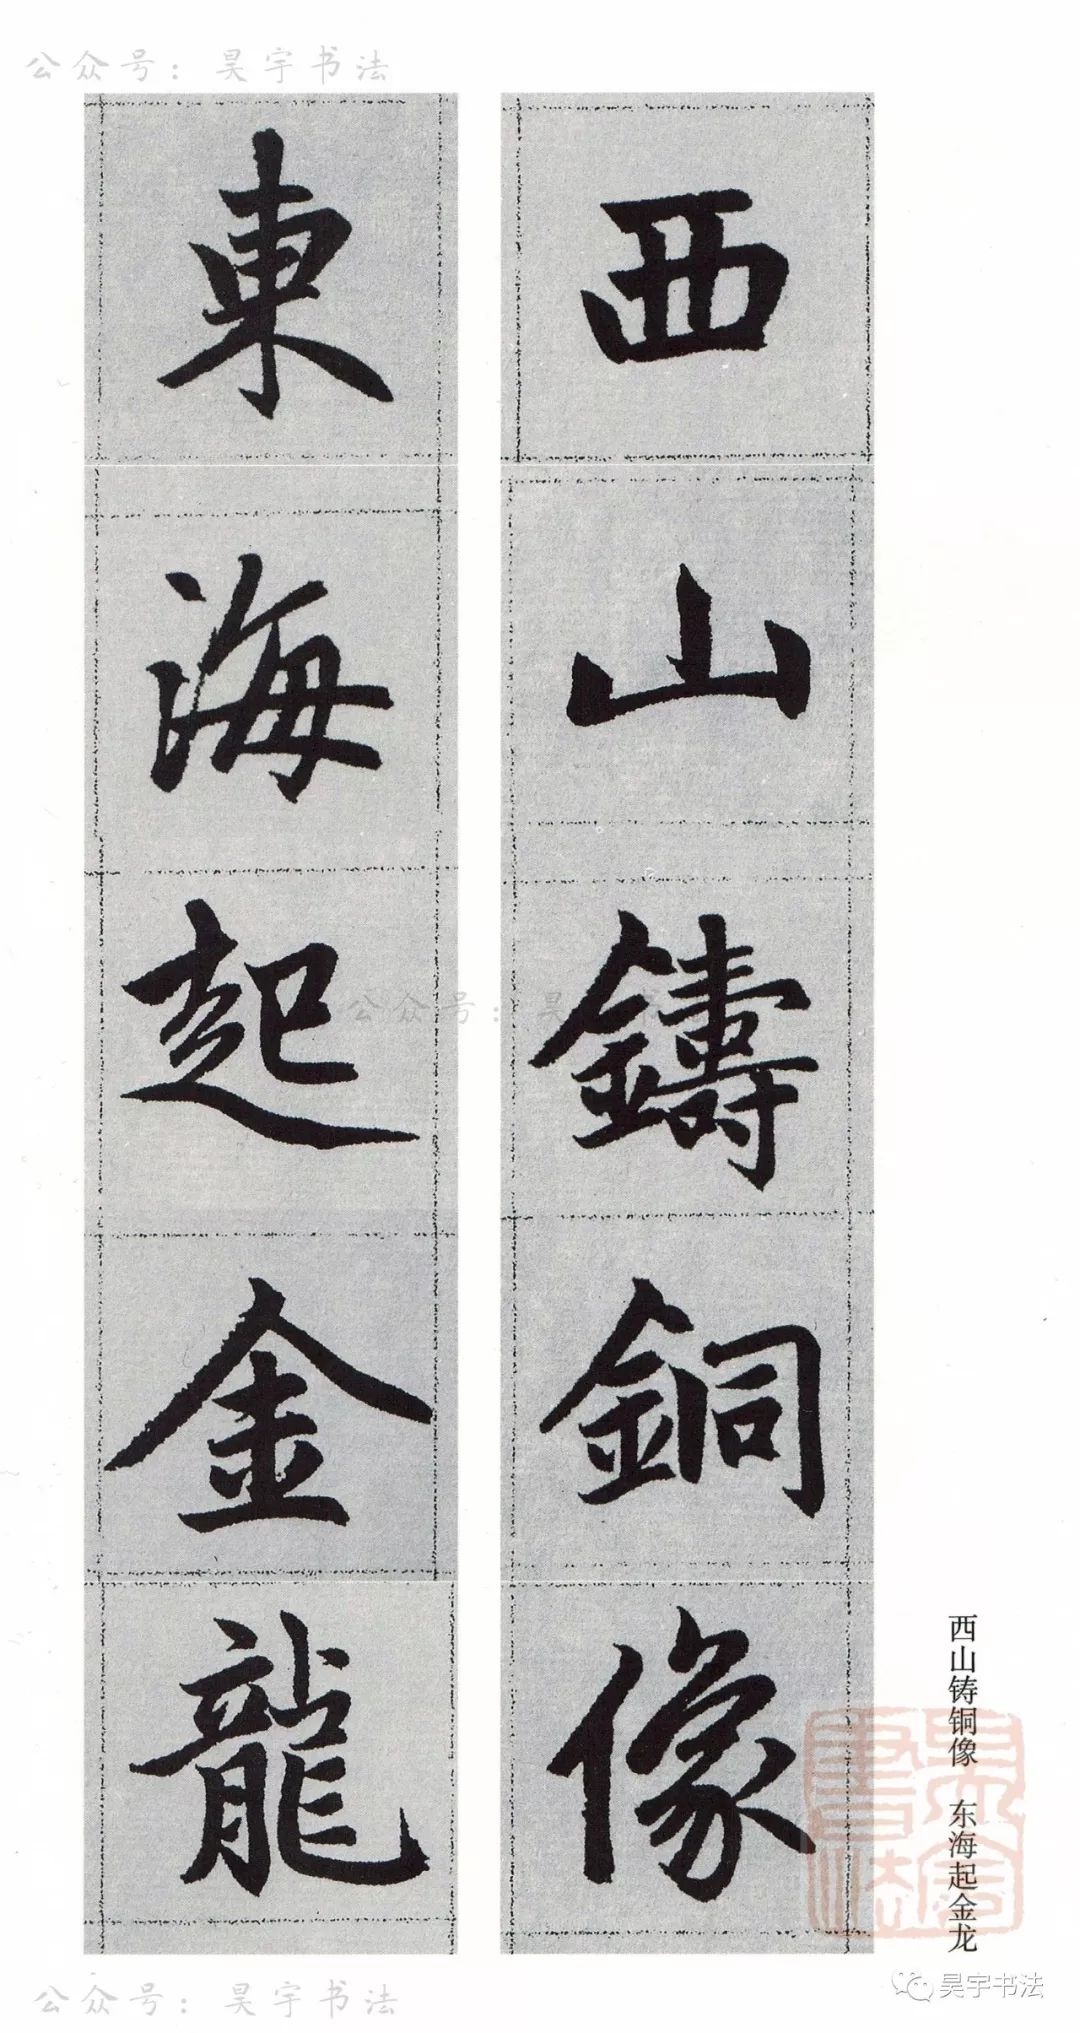 公众号：昊宇书法
西山鑄銅像
東海起金龍
西山铸铜像 东海起金龙
公众号：昊宇书
昊宇書法
公众号：昊宇书法
昊宇书法